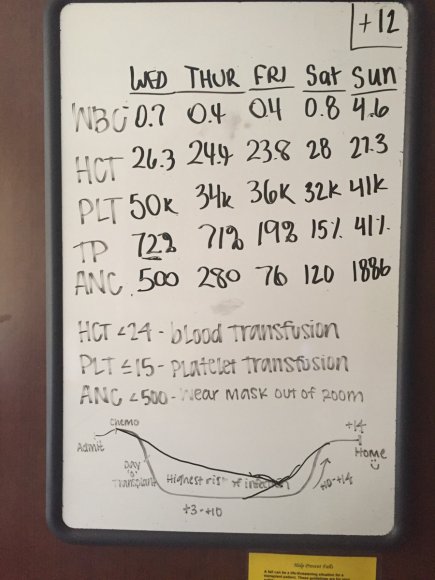 +12
WED THUR FRI Sat Sun
WBC 0.7 0.4 0.4 0.8 4.6
HCT 26.3 24.9 23.8 28 27.3
PLT 50K 34K 36K 32K 41K
TP 72% 71% 19% 15% 41%
ANC 500 280 76 120 1886
HCT <24 - blood transfusion
PLT ≤15 - platelet transfusion
ANC <500 - Wear mask out of room
Chemo
+14
Admit
Home
Day
"0"
Transplant
Highest risk of infection
+10-+14
+3-+10
Help Prevent Falls